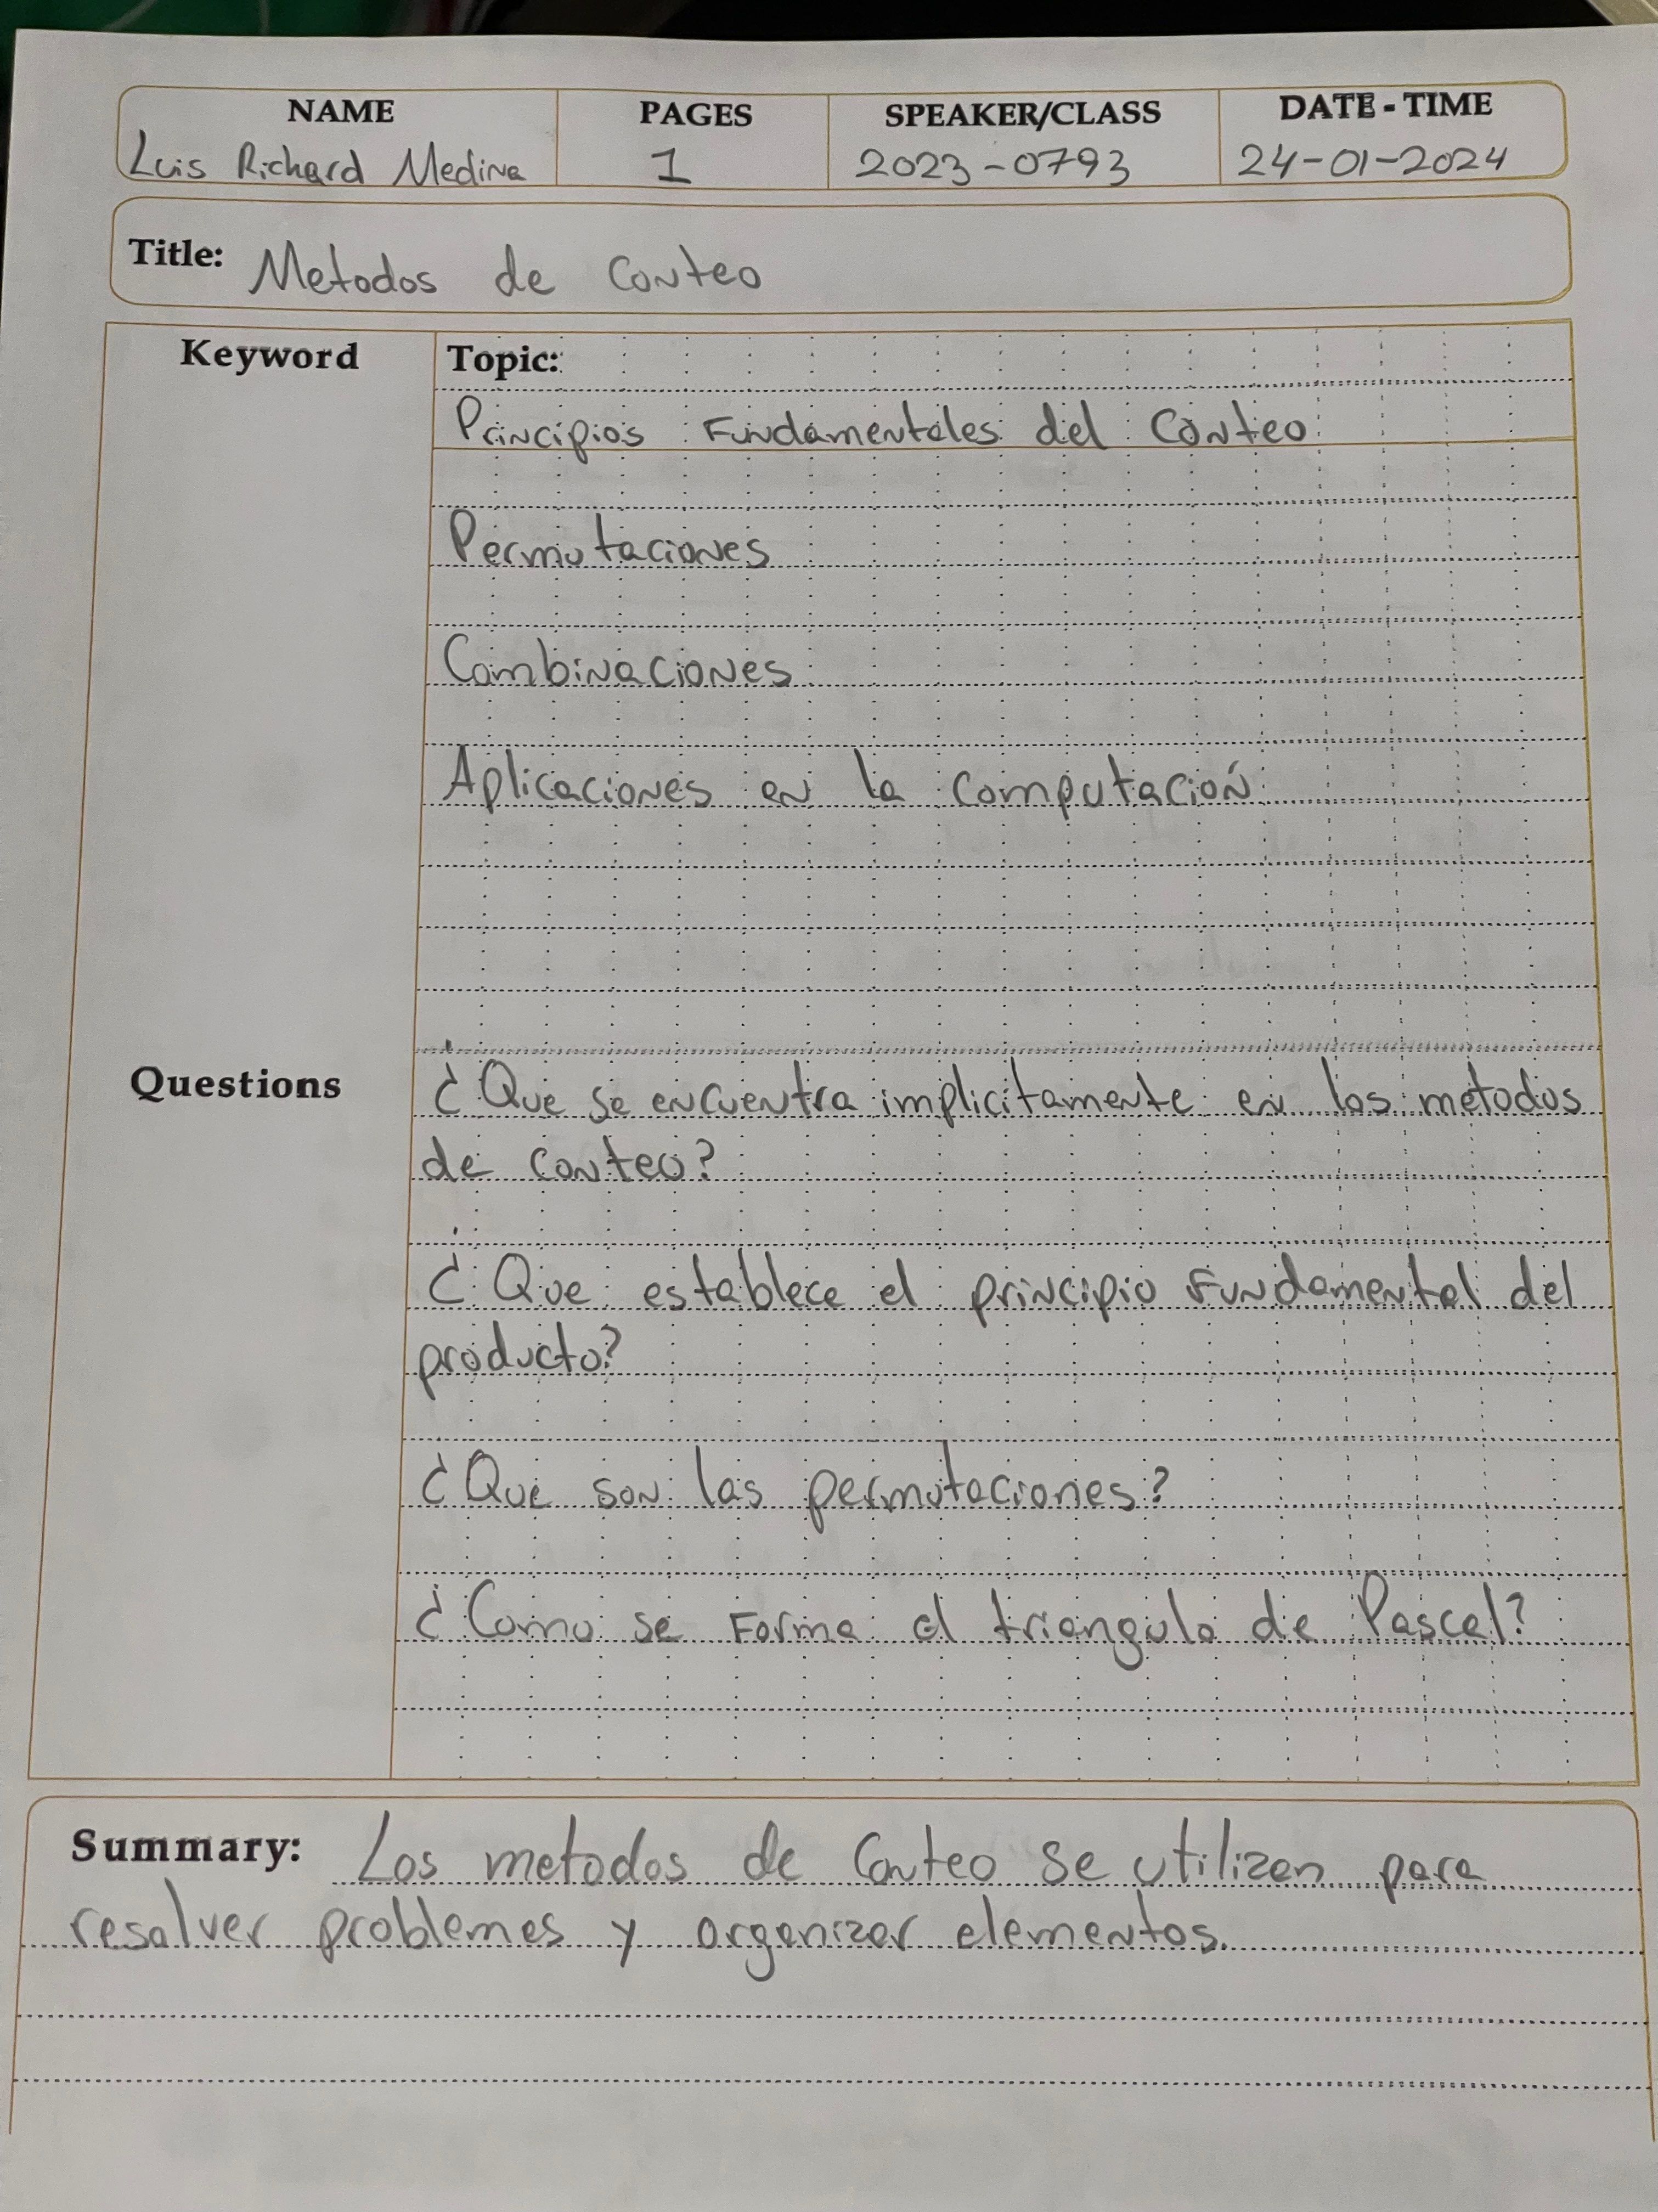 NAME PAGES SPEAKER/CLASS DATE - TIME
Luis Richard Medina 1 2023-0793 24-01-2024
Title: Metodos de Conteo
Keyword Topic:
Principios Fundamentales del Conteo
Permutaciones
Combinaciones
Aplicaciones en la computación
Questions ¿Que se encuentra implicitamente en los metodos
de conteo?
¿Que establece el principio fundamental del
producto?
¿Que son las permutaciones?
¿Como se forma el triangulo de Pascal?
Summary: Los metodos de Conteo se utilizan para
resolver problemas y organizar elementos.